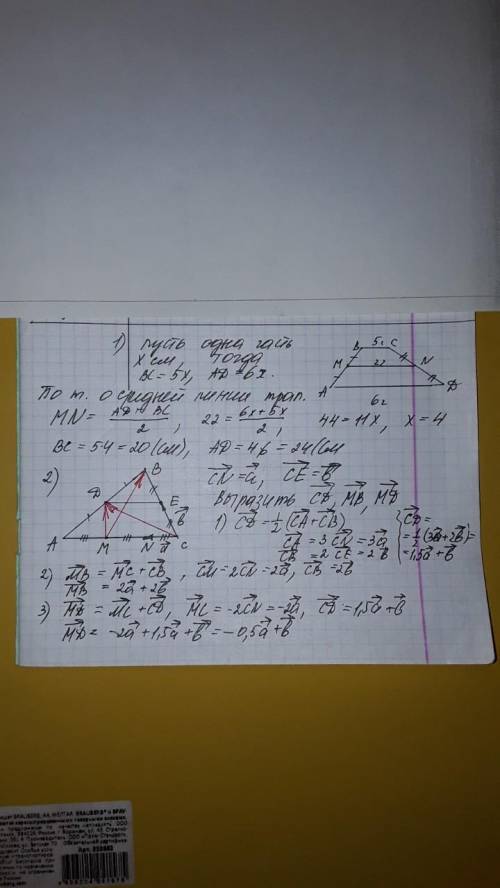 1) пусть одна часть
х см, тогда
BC = 5x, AD = 6x.
B 5x C
M 22 N
A D
6x
По т. о средней линии трап.
MN = (AD + BC)/2, 22 = (6x + 5x)/2, 44 = 11x, x = 4
BC = 5·4 = 20 (см), AD = 4·6 = 24 (см
2) B D E b⃗ A M N a⃗ C
C͞N⃗ = a⃗, C͞E⃗ = b⃗
Выразить C͞D⃗, M͞B⃗, M͞D⃗
1) C͞D⃗ = 1/2 (C͞A⃗ + C͞B⃗)
C͞A⃗ = 3 C͞N⃗ = 3a⃗
C͞B⃗ = 2 C͞E⃗ = 2b⃗
C͞D⃗ =
= 1/2 (3a⃗ + 2b⃗) =
= 1,5a⃗ + b⃗
2) M͞B⃗ = M͞C⃗ + C͞B⃗, C͞M⃗ = 2C͞N⃗ = 2a⃗, C͞B⃗ = 2b⃗
M͞B⃗ = 2a⃗ + 2b⃗
3) M͞D⃗ = M͞C⃗ + C͞D⃗, M͞C⃗ = -2C͞N⃗ = -2a⃗, C͞D⃗ = 1,5a⃗ + b⃗
M͞D⃗ = -2a⃗ + 1,5a⃗ + b⃗ = -0,5a⃗ + b⃗